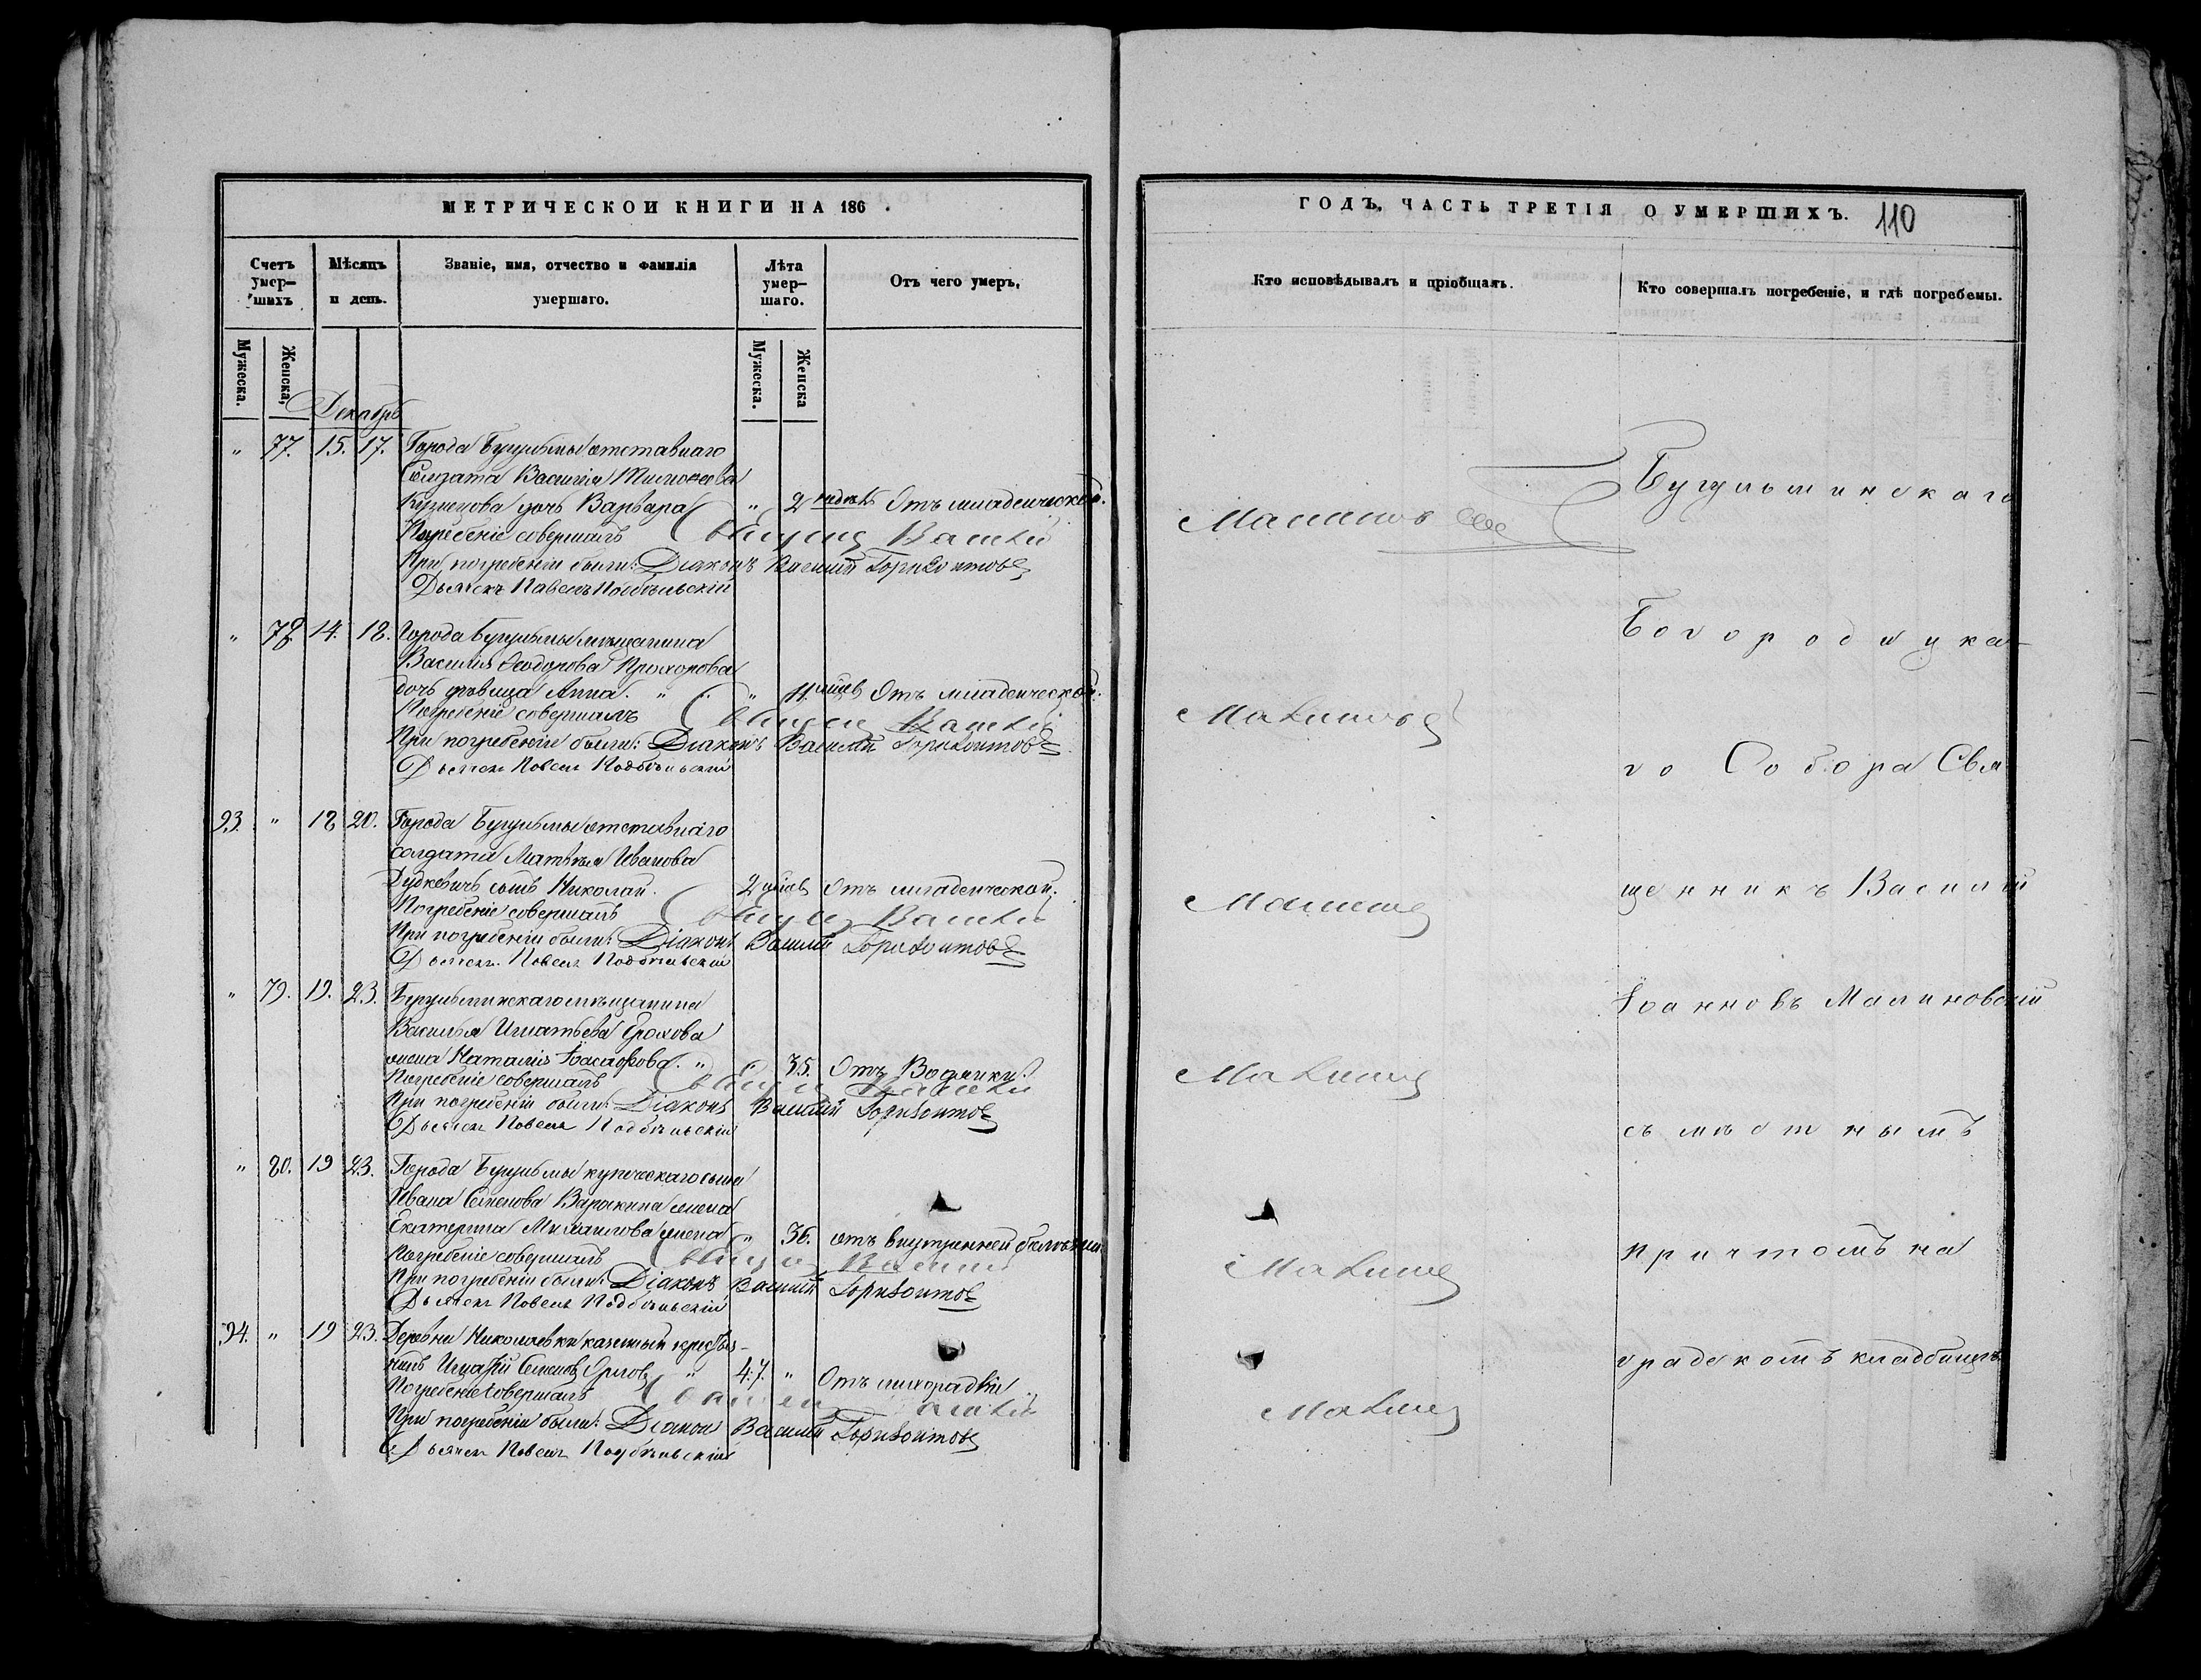 МЕТРИЧЕСКОИ КНИГИ НА 186 .
Счетъ умер-шихъ
Мѣсяцъ и день.
Званіе, имя, отчество и фамилія умершаго.
Лѣта умер-шаго.
Отъ чего умеръ.
Мужеска.
Женска,
Мужеска.
Женска
Декабрь
" 77. 15. 17. Города Бугульмы отставнаго
Солдата Василія
Кузнецова дочь Варвара " 2 недѣль Отъ младенческой.
Погребеніе совершалъ Священ Василій
При погребеніи были: Діаконъ Василій Горизонтовъ
Дьячекъ Павелъ Подбѣльскій
" 78 14. 18. Города Бугульмы мѣщанина
Василія Ѳеодорова Прохорова
дочь дѣвица Анна. " " 11 мѣсяцъ Отъ младенческой.
Погребеніе совершалъ Священ Василій
При погребеніи были: Діаконъ Василій Горизонтовъ
Дьячекъ Павелъ Подбѣльскій
93. " 18 20. Города Бугульмы отставнаго
солдата Матвѣя Иванова
сынъ Николай. 2 мѣсяц Отъ младенческой.
Погребеніе совершалъ Священ Василій
При погребеніи были: Діаконъ Василій Горизонтовъ
Дьячекъ Павелъ Подбѣльскій
" 79. 19. 23. Бугульминскаго мѣщанина
Василья Игнатьева Ерохова
жена Наталія " " 35. Отъ Водянки.
Погребеніе совершалъ Священ Василій
При погребеніи были: Діаконъ Василій Горизонтовъ
Дьячекъ Павелъ Подбѣльскій
" 80. 19 23. Города Бугульмы купеческаго сына
Ивана Семенова Варакина жена
Екатерина Михаилова жена " 36. отъ внутренней болѣзни
Погребеніе совершалъ Священ Василій
При погребеніи были: Діаконъ Василій Горизонтовъ
Дьячекъ Павелъ Подбѣльскій
94. " 19 23. Деревни Николаевки казенный крестья-
нинъ Семеновъ Орловъ " 47. " Отъ лихорадки.
Погребеніе совершалъ
При погребеніи были: Діаконъ Василій Горизонтовъ
Дьячекъ Павелъ Подбѣльскій
ГОДЪ, ЧАСТЬ ТРЕТІЯ О УМЕРШИХЪ.
110
Кто исповѣдывалъ и пріобщалъ.
Кто совершалъ погребеніе, и гдѣ погребены.
Бугульминскаго
Богородицка-
го Собора Свя-
щенникъ Василій
Іоанновъ Малиновскій
съ мѣстнымъ
причтомъ на
градскомъ кладбищѣ